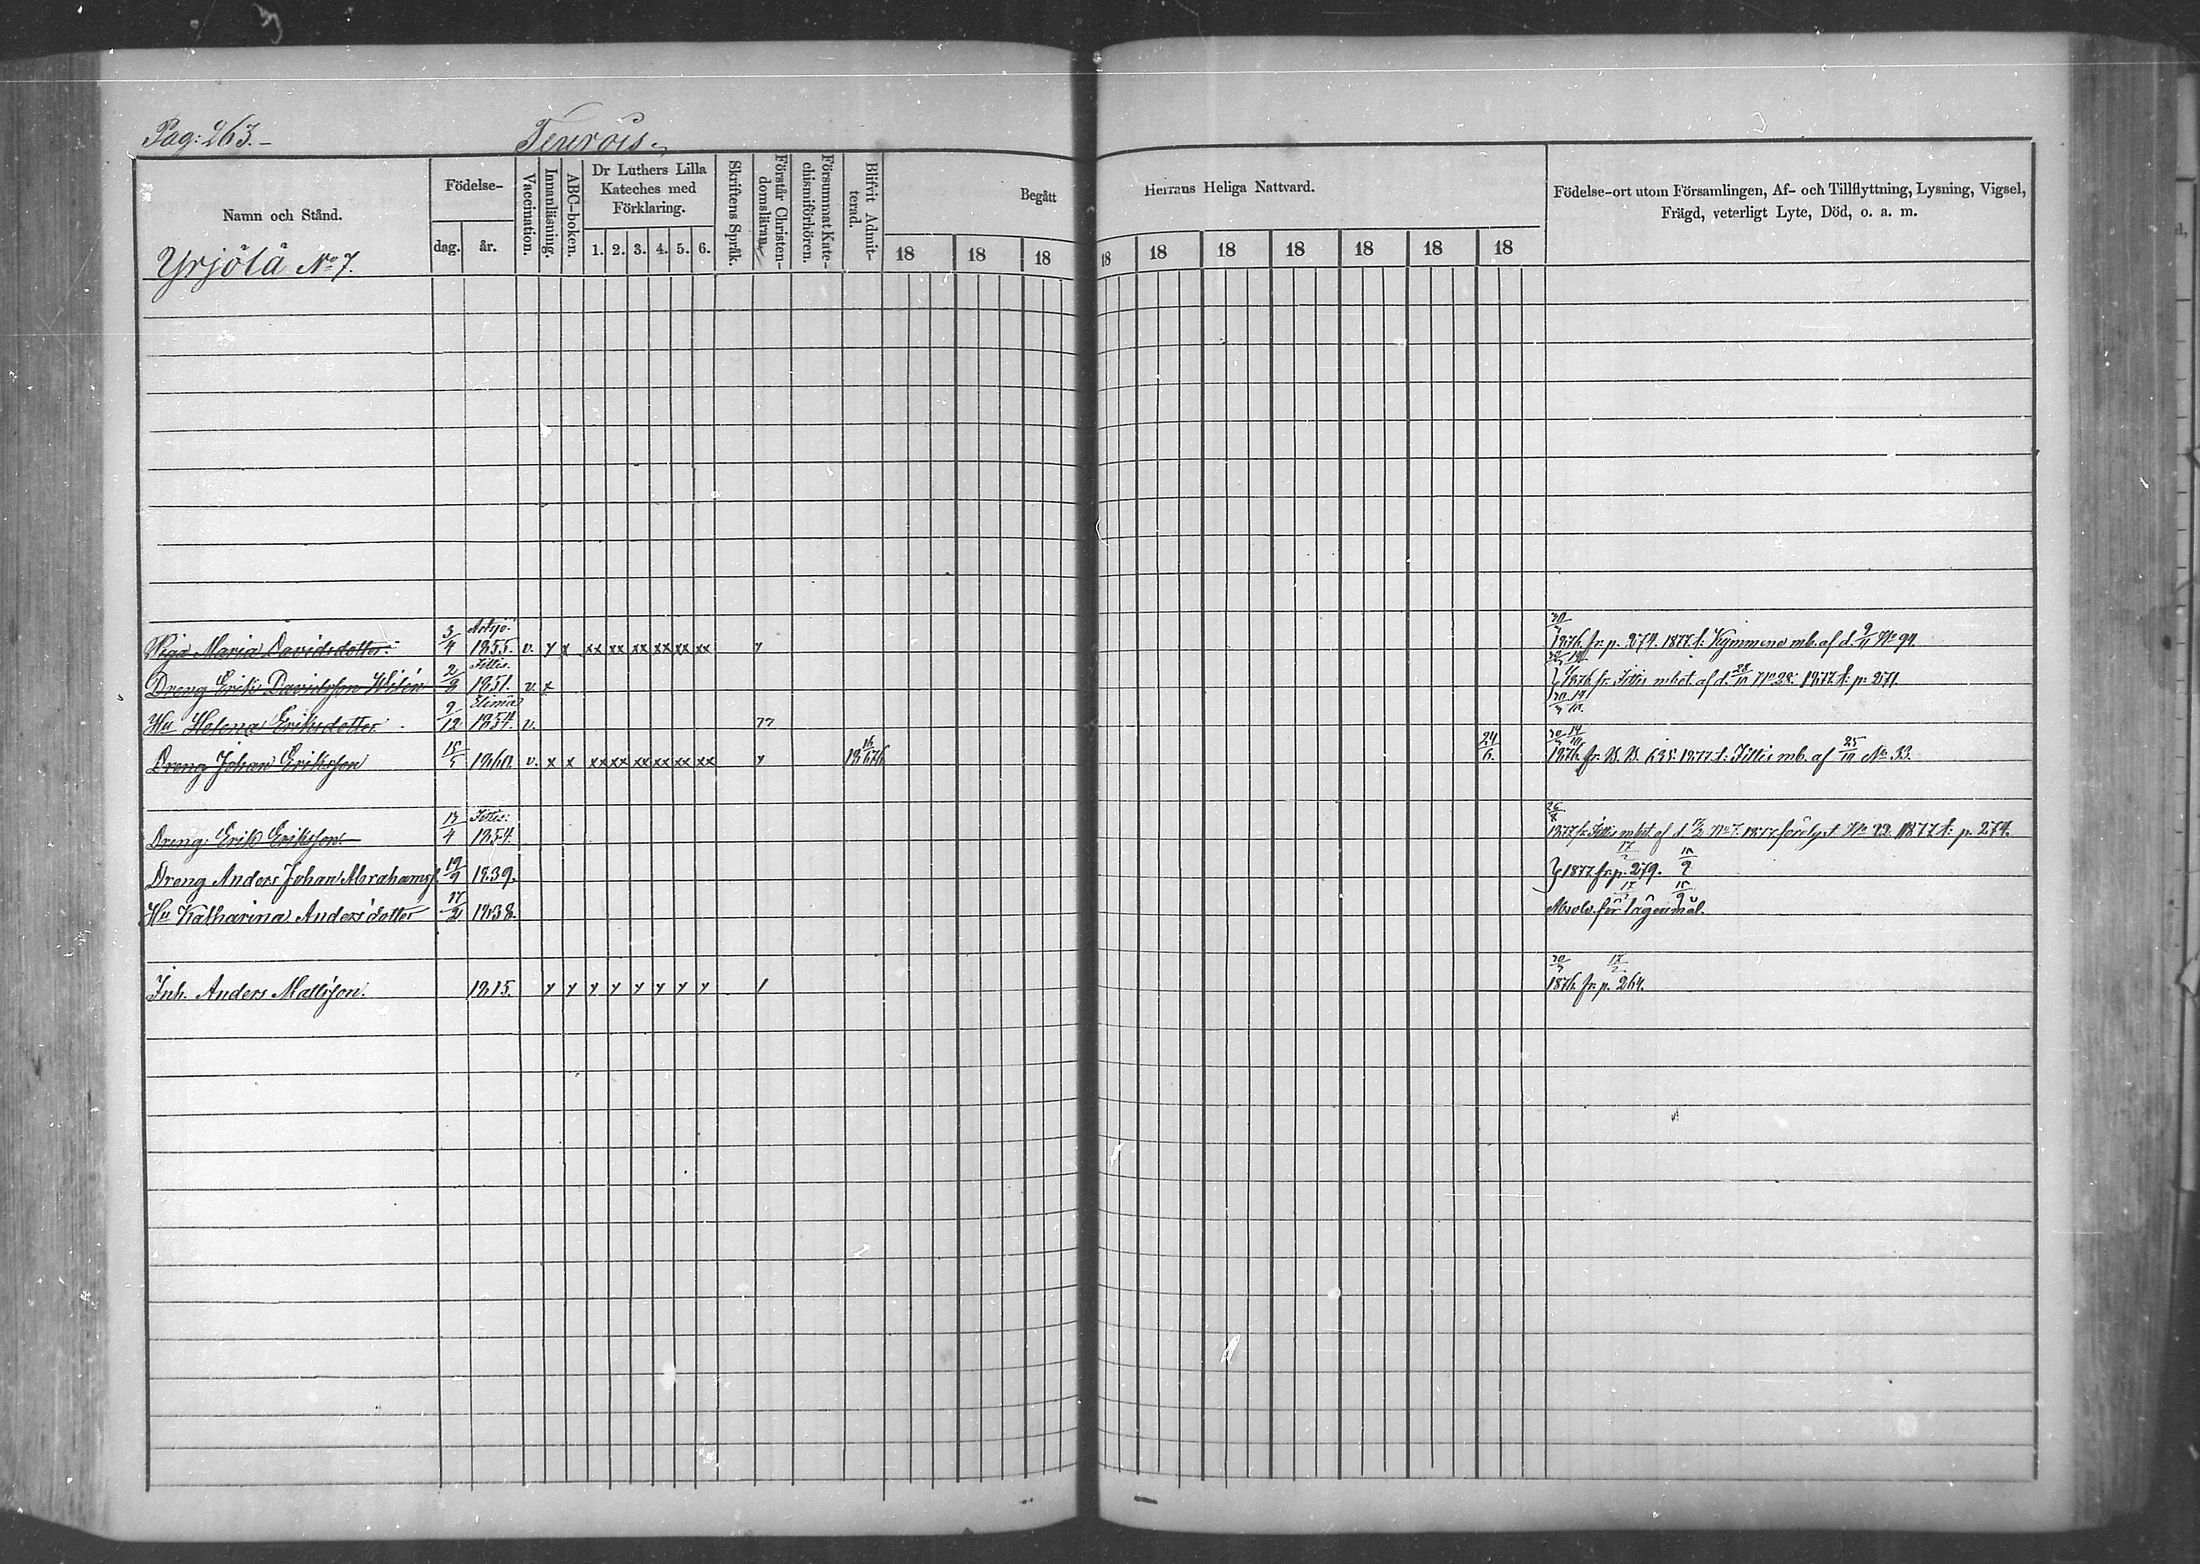 Pag: 263.
Teurois.
Namn och Stånd.
Yrjölä No 7.
Födelse-
dag. år.
Vaccination.
Innanläsning.
ABC-boken.
Dr Luthers Lilla Kateches med Förklaring.
1. 2. 3. 4. 5. 6.
Skriftens Språk.
Förstår Christendomsläran.
Försummat Katechismiförhören.
Blifvit Admitterad.
Begått Herrans Heliga Nattvard.
18 18 18 18 18 18 18 18 18 18
Födelse-ort utom Församlingen, Af- och Tillflyttning, Lysning, Vigsel,
Frägd, veterligt Lyte, Död, o. a. m.
Piga Maria Davidsdotter. 3/4 Artsjö 1855. v. y x xx xx xx xx xx xx y 1876 fr. p. 274. 1877 t: Kymmene mb. af d. 9/11 No 94.
Dreng Erik Davidsson Wilén 2/8 Fittis. 1851. v. x 1876 fr. Fittis mbet. af d. 28/10 No 28. 1877 t: p. 271
Hu Helena Eriksdotter 9/12 Elimä 1854. v. 77
Dreng Johan Eriksson 15/5 1860. v. x x xx xx xx xx xx xx y 1876 24/6. 1876 fr. B. B. 635. 1877 t: Fittis mb. af 25/10 No 33.
Dreng Erik Eriksson. 13/4 Fittis: 1854. 1877 fr Fittis mbet af d. No 7. 1877 No 22. 1877 t: p. 274.
Dreng Anders Johan Abrahamss. 19/9 1839. 1877 fr p. 279.
Hu Katharina Andersdotter 17/2 1838. Absolv. för lägersmål.
Inh. Anders Mattsson. 1815. y y y y y y y y / 1876 fr p. 264.